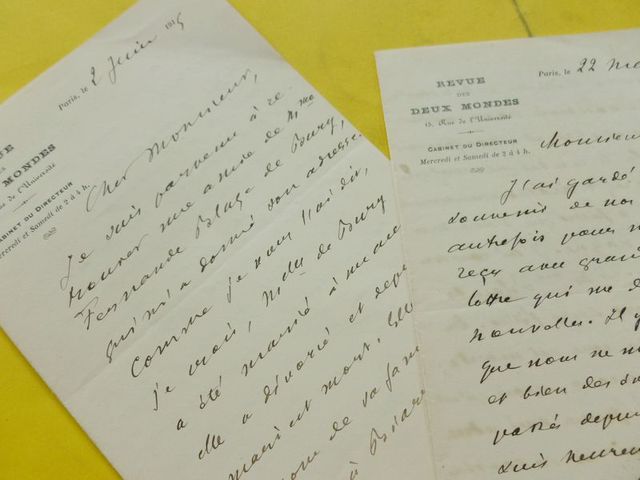 Paris, le 2 Juin 1915
REVUE
DES
DEUX MONDES
15, Rue de l'Université
CABINET DU DIRECTEUR
Mercredi et Samedi de 2 à 4 h.
Cher Monsieur,
Je suis parvenu à re
trouver une amie de Mme
Fernande Blaze de Bury,
qui m'a donné son adresse.
Comme je vous l'ai dit,
je crois, Mdlle de Bury
a été mariée à
elle a divorcé et
mari est mort. Elle
nom de sa fam
à
REVUE
DES
DEUX MONDES
15, Rue de l'Université
CABINET DU DIRECTEUR
Mercredi et Samedi de 2 à 4 h.
Paris, le 22 Ma
Monsieu
J'ai gardé
souvenir de nos
autrefois
reçu avec gran
lettre qui me d
nouvelles. Il y
que nous ne
et bien des
passé depu
suis heureu